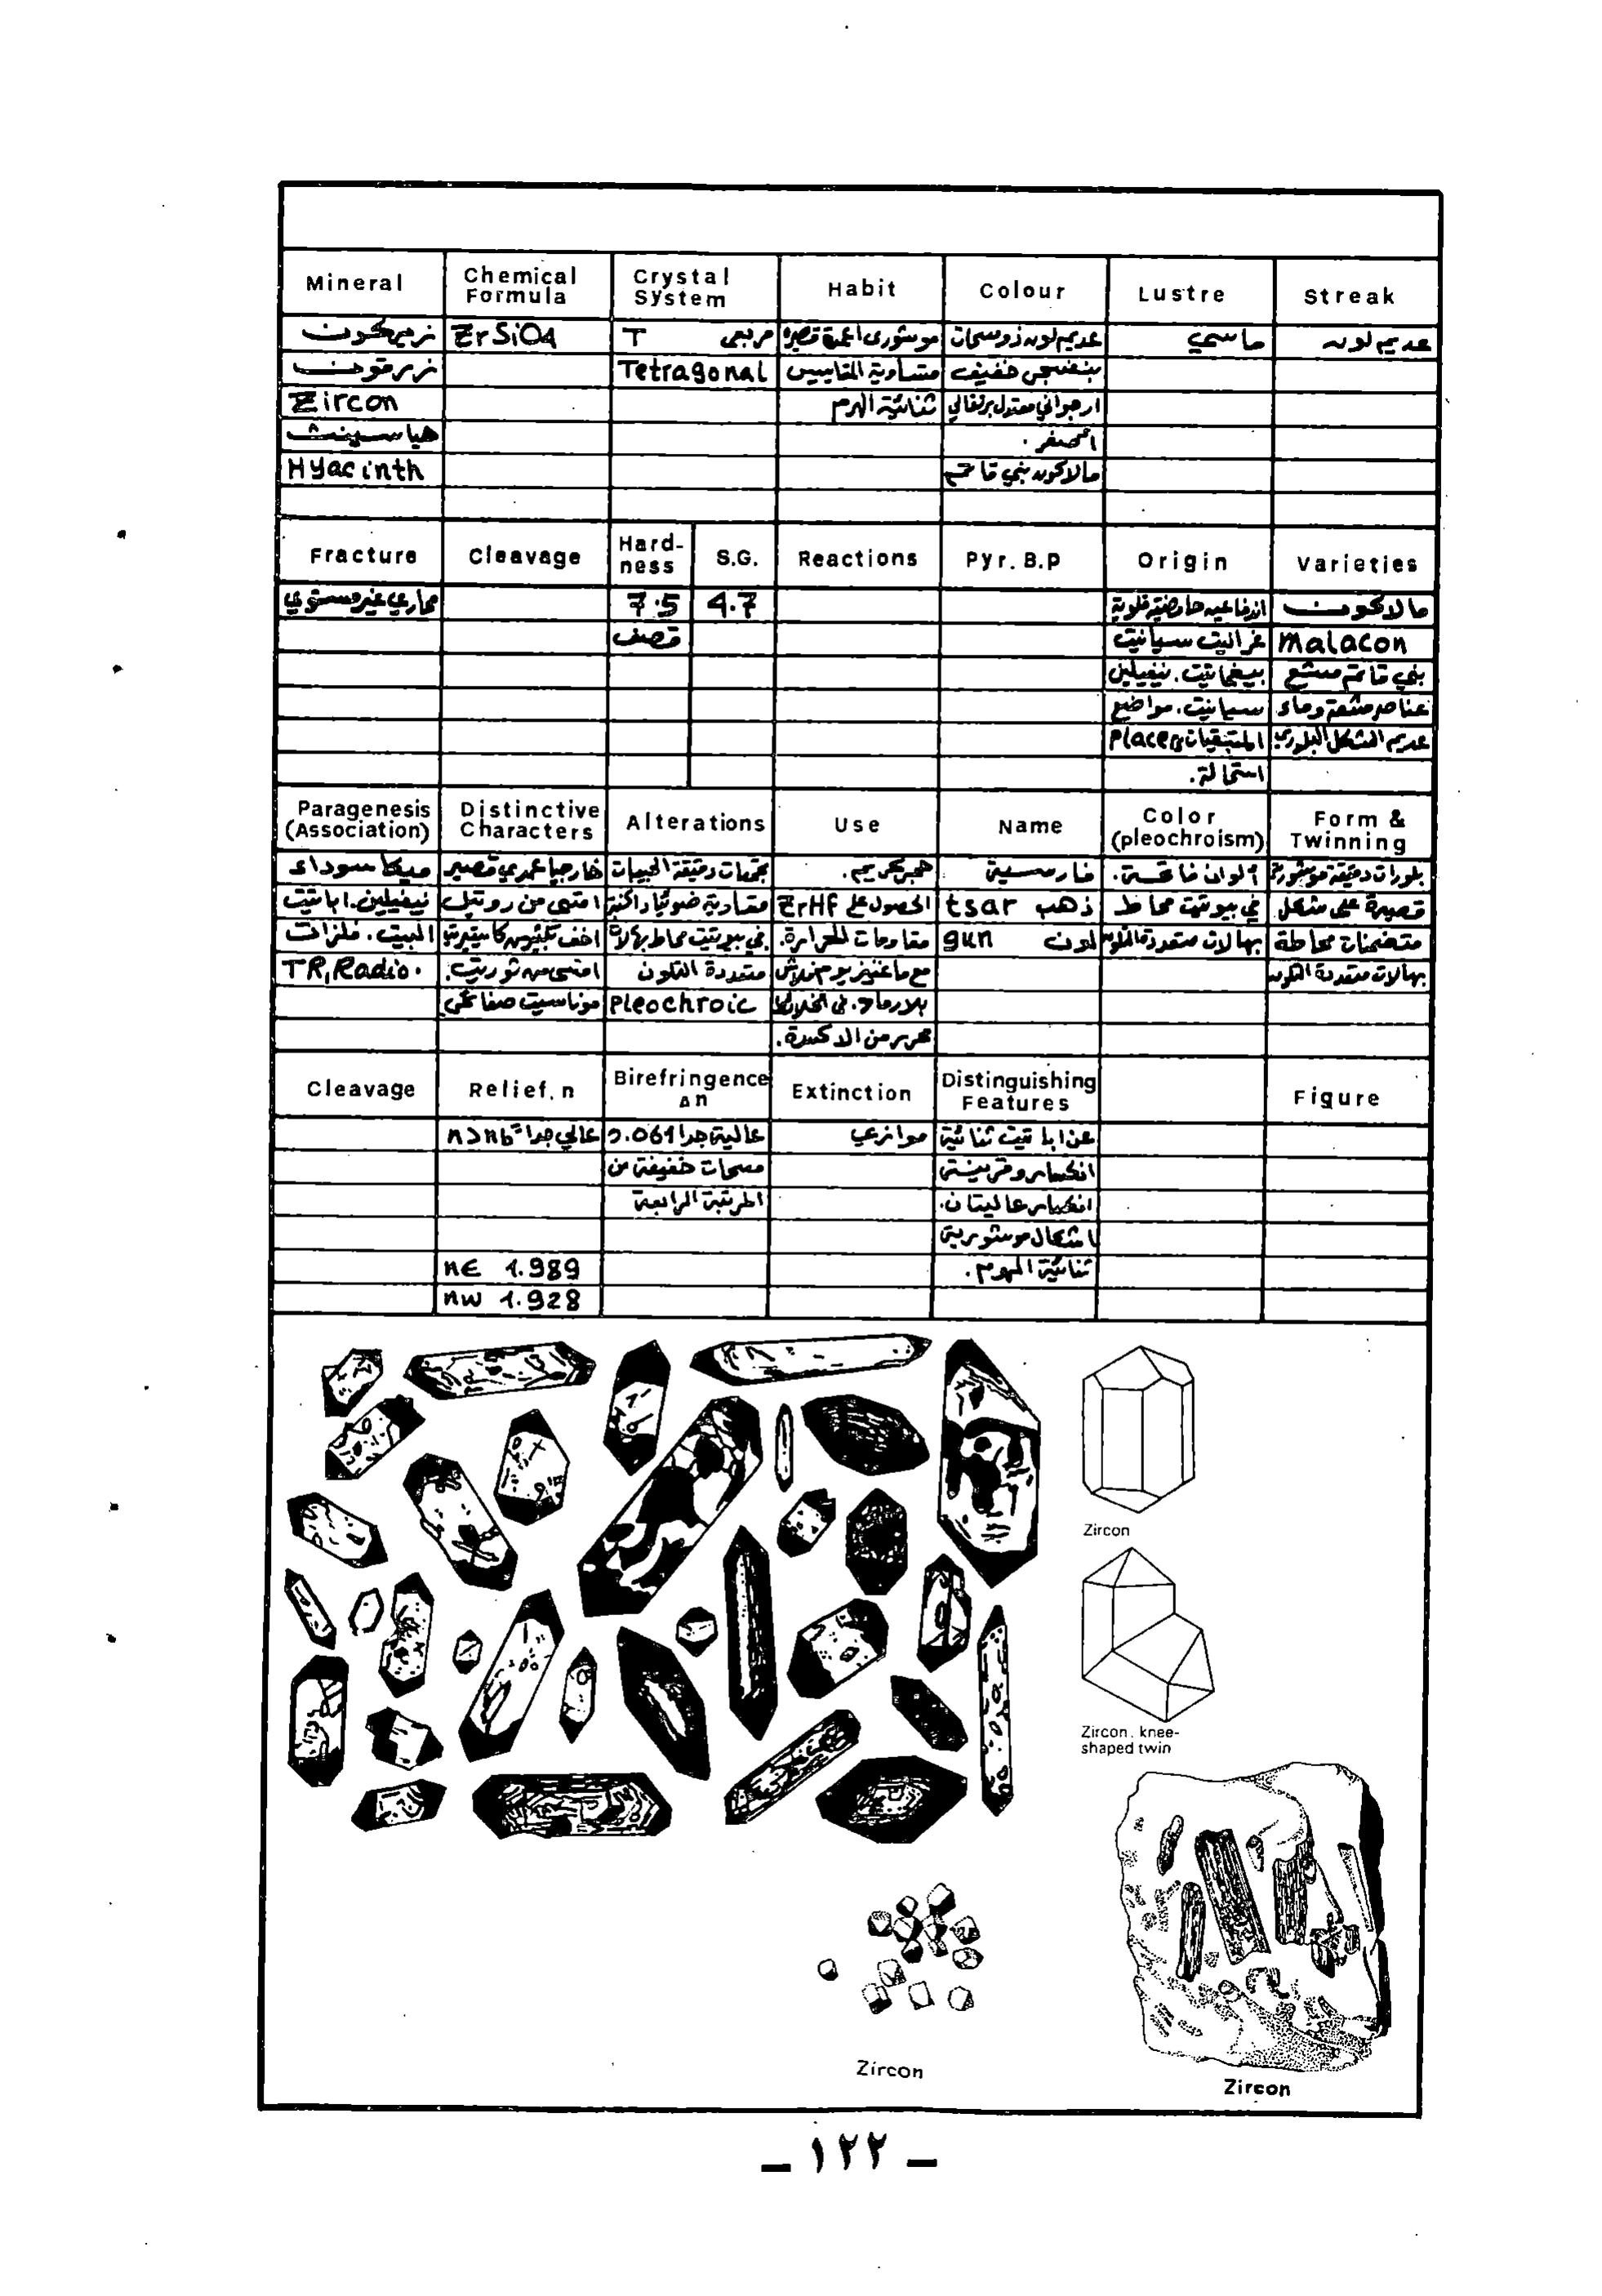 Mineral Chemical Formula Crystal System Habit Colour Lustre Streak
زيركون ZrSiO4 T مربعي موشوري اعمدة قصيرة عديم لون ذو سمات ماسي عديم لون
زرقون Tetragonal متساوية المقاييس بنفسجي خفيف
Zircon ثنائية الهرم ارجواني معتدل برتقالي
هياسينث اصفر.
Hyacinth مالاكون بني قاتم
Fracture Cleavage Hard-ness S.G. Reactions Pyr. B.p Origin Varieties
محاري غير مستوي 7.5 4.7 اندفاعية حامضية قلوية مالاكون
قصف غرانيت سيانيت malacon
بيغماتيت. نيفيلين بني قاتم مشع
سيانيت. مواضع عناصر مشعة وماء
المتبقيات placer عديم الشكل البلوري
استحالة.
Paragenesis (Association) Distinctive Characters Alterations Use Name Color (pleochroism) Form & Twinning
ميكا سوداء خارجيا عمودي قصير تجمعات دقيقة الحبيبات حجر كريم. فارسية الوان فاتحة. بلورات دقيقة موشورية
نيفيلين. اباتيت اقسى من روتيل الحصول على ZrHf ذهب tsar في بيوتيت محاط قصيرة على شكل
البيت. فلزات في بيوتيت محاط بهالات مقاومات للحرارة. لون gun بهالات متعددة التلون متضمنات محاطة
TR, Radio. اقسى من ثوريت. متعددة التلون بهالات متعددة التلون
موناسيت صفائحي pleochroic
Cleavage Relief. n Birefringence Δn Extinction Distinguishing Features Figure
عالي جدا n>nb عالية جدا 0.061 موازي عن اباتيت ثنائية
مسحات خفيفة من انكسار وقرينتي
المرتبة الرابعة انكسار عاليتان.
اشكال موشورية
nε 1.989 ثنائية الهرم.
nw 1.928
Zircon
Zircon, knee-
shaped twin
Zircon
Zircon
– ١٢٢ –